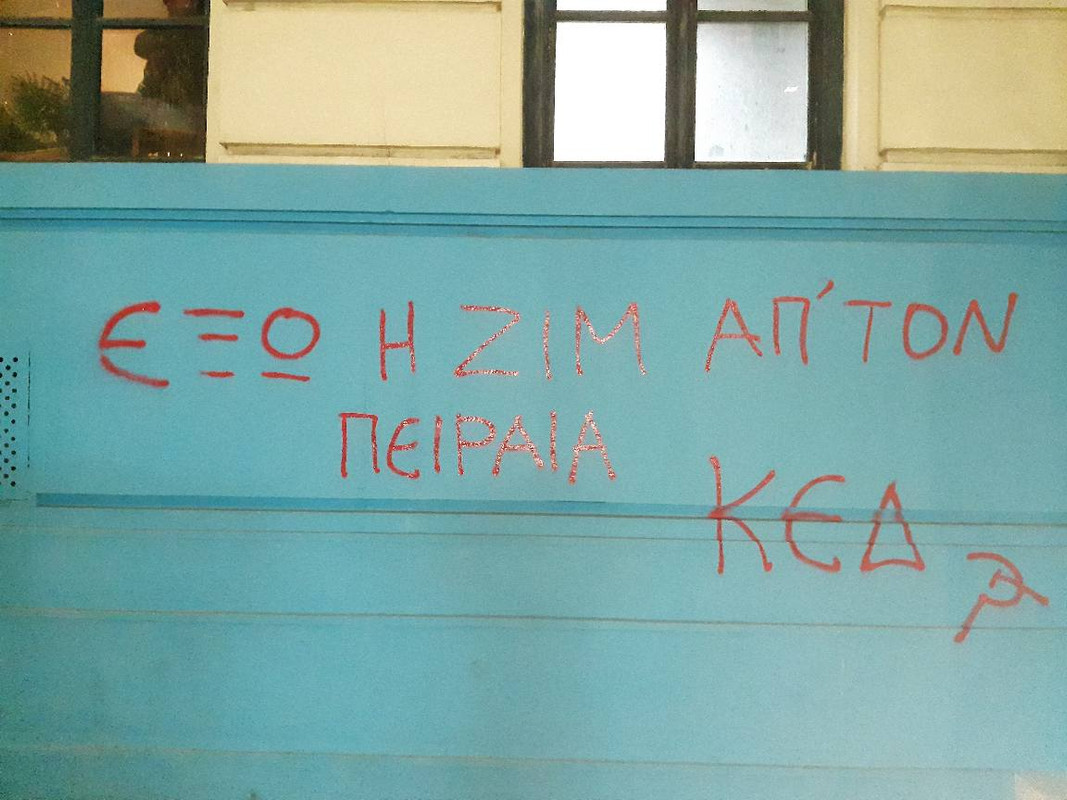 ΕΞΩ Η ΖΙΜ ΑΠ' ΤΟΝ
ΠΕΙΡΑΙΑ
ΚΕΔ